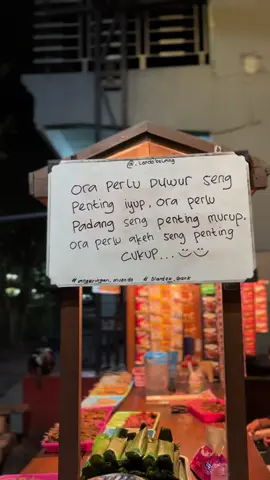 ORA PERLU DUWUR SENG
PENTING iyup. ORA PERLU
PADANG SENG PENTING MURUP.
ORA PERLU AKEH SENG PENTING
CUKUP...